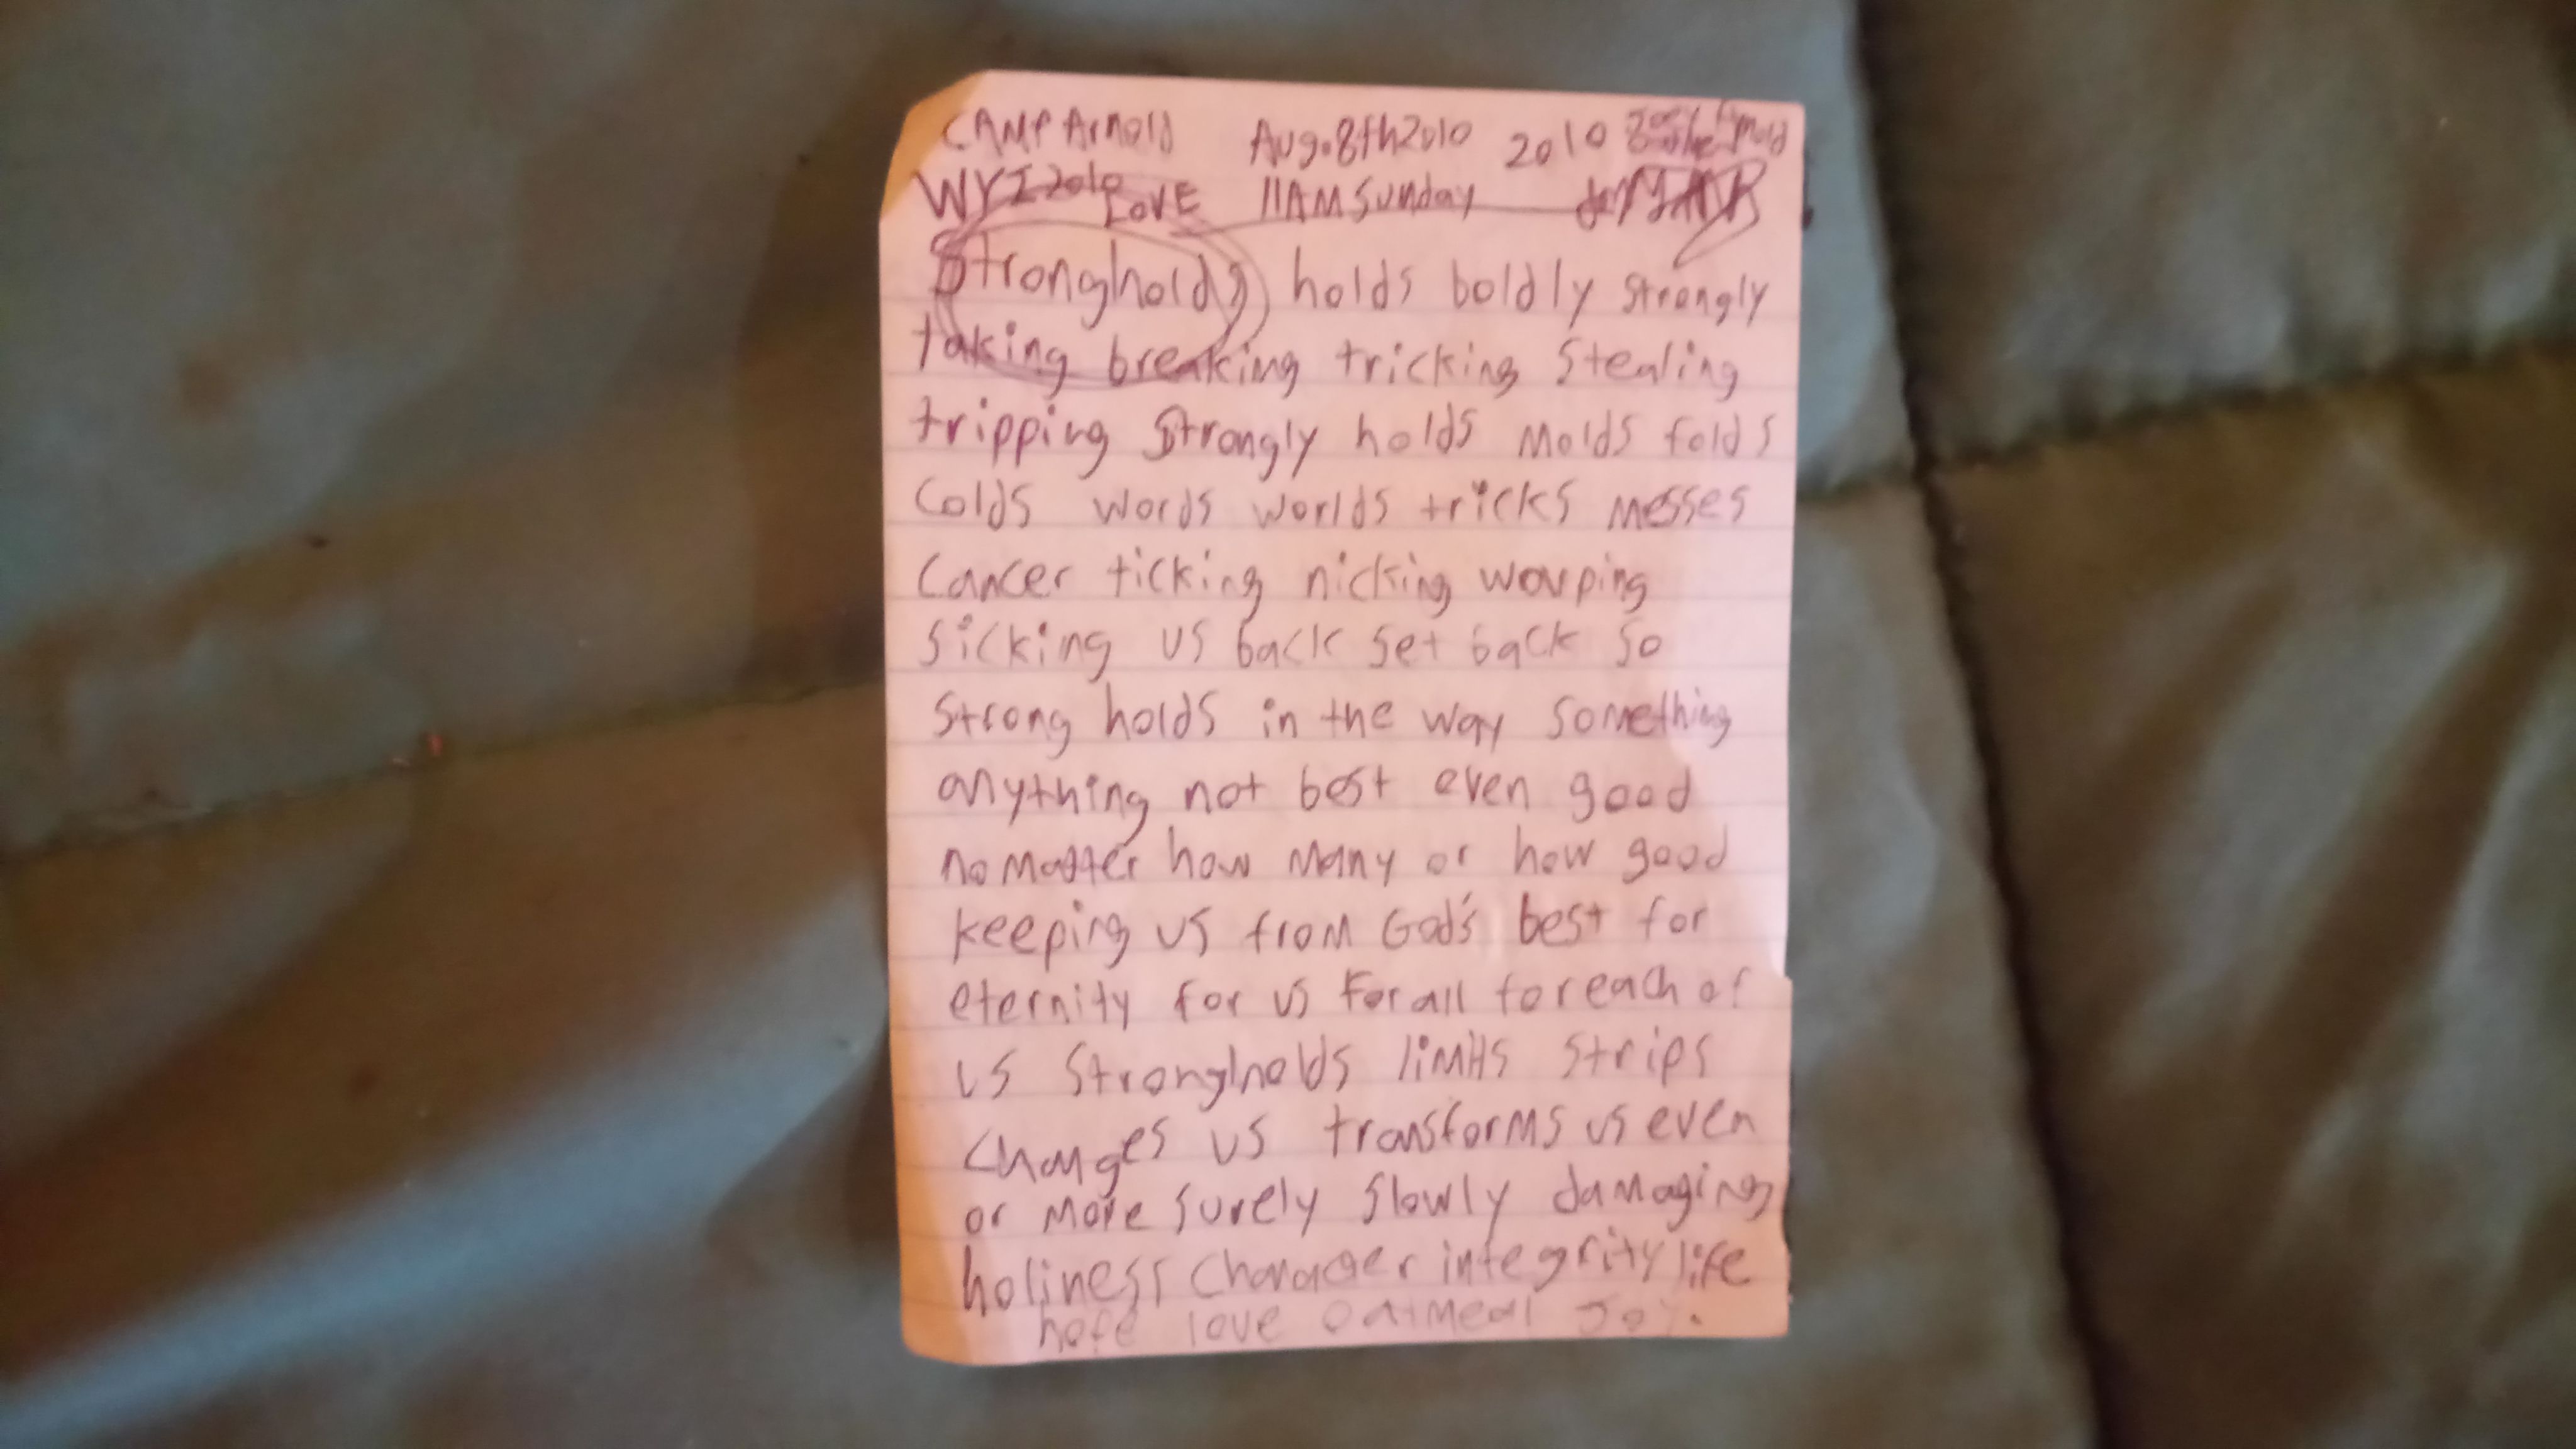 CAMP Arnold Aug. 8th 2010 2010
WYI 2010 LOVE 11AM Sunday
Strongholds holds boldly strongly
taking breaking tricking stealing
tripping strongly holds molds folds
Colds words worlds tricks messes
Cancer ticking nicking warping
sicking us back set back so
strong holds in the way something
anything not best even good
no matter how many or how good
keeping us from God's best for
eternity for us For all for each of
us Strongholds limits strips
changes us transforms us even
or more surely slowly damaging
holiness character integrity life
hope love oatmeal Joy.